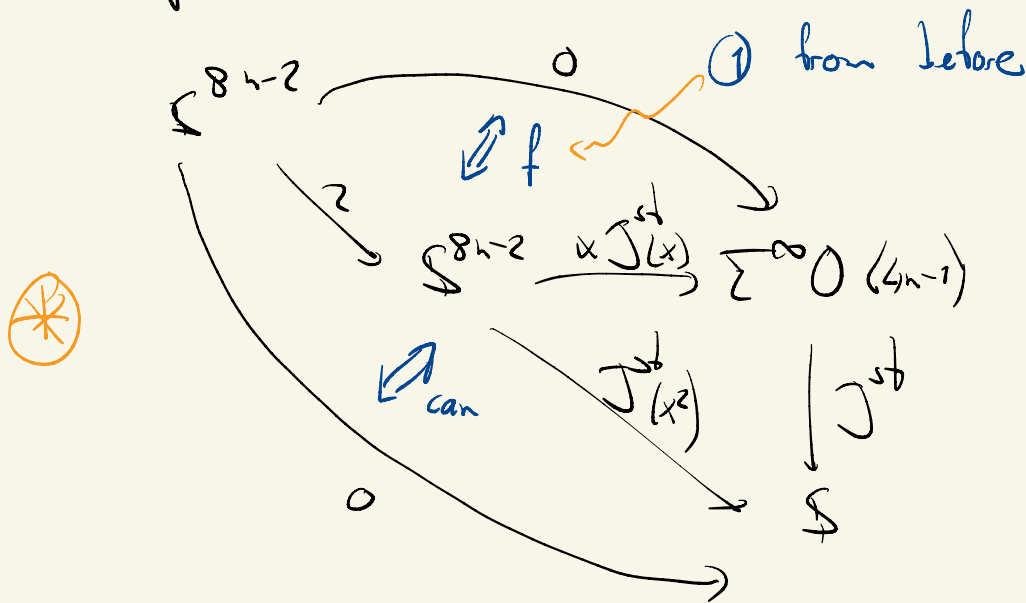 0
① from before
𝕊^{8n-2}
f
2
𝕊^{8n-2} x J^{st}(x) Σ^∞ O⟨4n-1⟩
can
J^{st}(x²)
J^{st}
0
𝕊